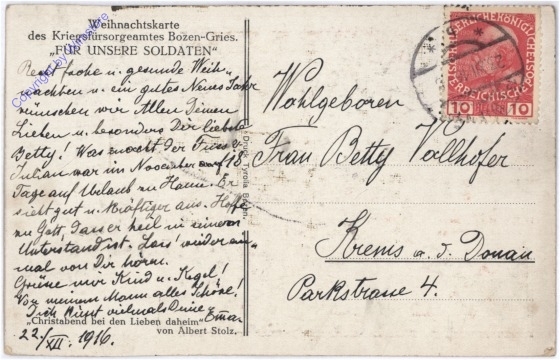 Weihnachtskarte
des Kriegsfürsorgeamtes Bozen-Gries.
„FÜR UNSERE SOLDATEN"
Recht frohe u. gesunde Weih-
nachten u. ein gutes Neues Jahr
wünschen wir Allen Deinen
Lieben u. besonders Dir liebste
Betty! Was macht der
Julian war im November auf 18
Tage auf Urlaub zu Hause. Er
sieht gut u. kräftiger aus. Hoffe
zu Gott, dass er heil in einem
Unterstand ist. Lass' wieder ein-
mal von Dir hören.
Grüsse mir Kind u. Kegel!
Von meinem Mann alles Schöne!
Dich küsst vielmals Deine
„Christabend bei den Lieben daheim"
von Albert Stolz.
22./XII. 1916.
Druck Tyrolia Bozen
Wohlgeboren
Frau Betty Vollhofer
Krems a. d. Donau
Parkstrasse 4.
10 10
Copyright by